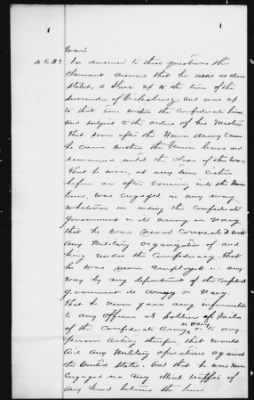 In answer to these questions the
claimant answers that he was as above
stated, a Slave up to the time of the
surrender of Vicksburg and was up
to that time within the Confederate lines
and subject to the orders of his Master
That soon after the Union Army came
he came within the Union lines and
remained until the close of the war,
That he never, at any time either
before or after coming into the Union
lines, was engaged in any way
whatever in aiding the Confederate
Government or its Army or Navy
that he was never connected with
any Military organization of any
kind under the Confederacy. that
he was never employed in any
way by any department of the Confed
Government its Army or Navy.
That he never gave any information
to any Officer or Soldier or Sailor
of the Confederate Army or Navy or to any
person acting therefor, that would
aid any Military operations against
the United States, and that he was never
engaged in any illicit traffic of
any kind between the lines